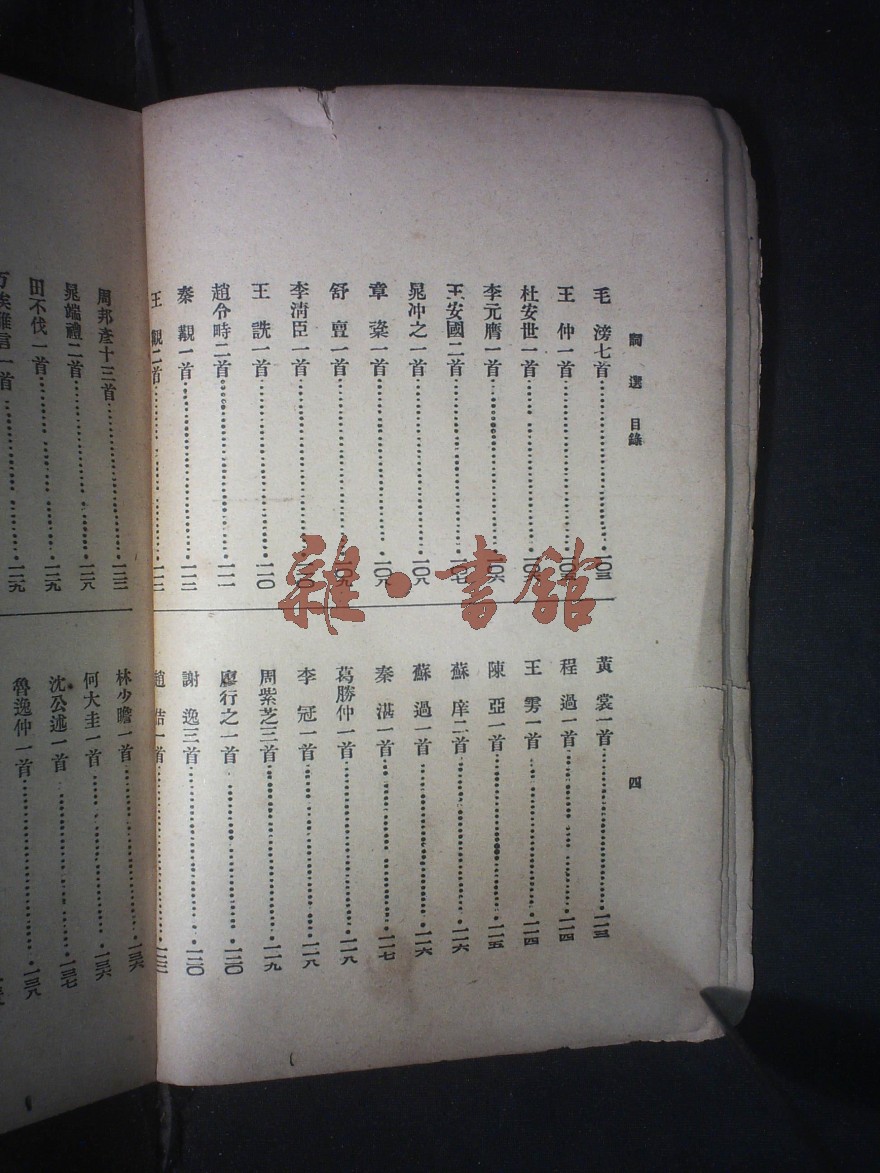 詞選 目錄 四
毛 滂七首……一〇三
王 仲一首……一〇五
杜安世一首……一〇六
李元膺一首……一〇六
王安國二首……一〇七
晁冲之一首……一〇八
章 楶一首……一〇八
舒 亶一首……一〇九
李清臣一首……一一〇
王 詵一首……一一〇
趙令時二首……一一一
秦 觀一首……一一二
王 觀二首……一一二
黃 裳一首……一一三
程 過一首……一一四
王 雱一首……一一四
陳 亞一首……一一五
蘇 庠二首……一一六
蘇 過一首……一一六
秦 湛一首……一一七
葛勝仲一首……一一八
李 冠一首……一一八
周紫芝三首……一一九
廖行之一首……一二〇
謝 逸三首……一二〇
趙 一首……一二二
周邦彥十三首……一二三
晁端禮二首……一二八
田不伐一首……一二九
万俟雅言一首……一二九
林少瞻一首……一三六
何大圭一首……一三六
沈公述一首……一三七
魯逸仲一首……一三八
雜·書館